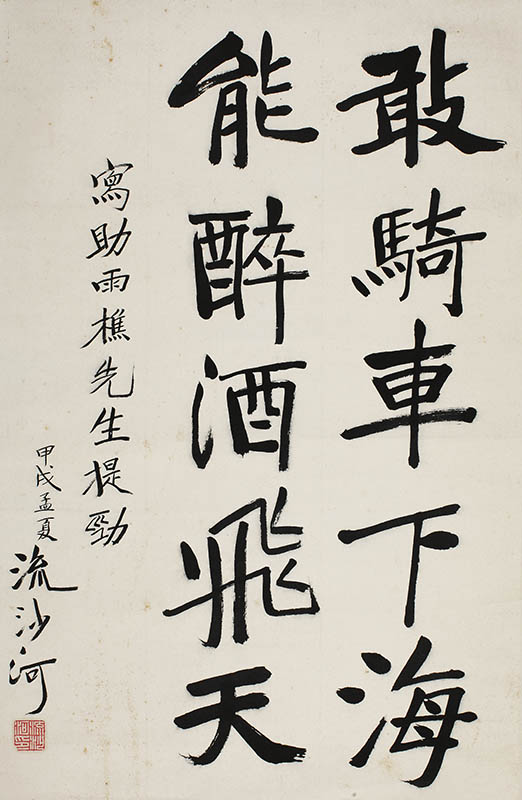 敢騎車下海
能醉酒飛天
寫助雨樵先生提勁
甲戌孟夏
流沙河